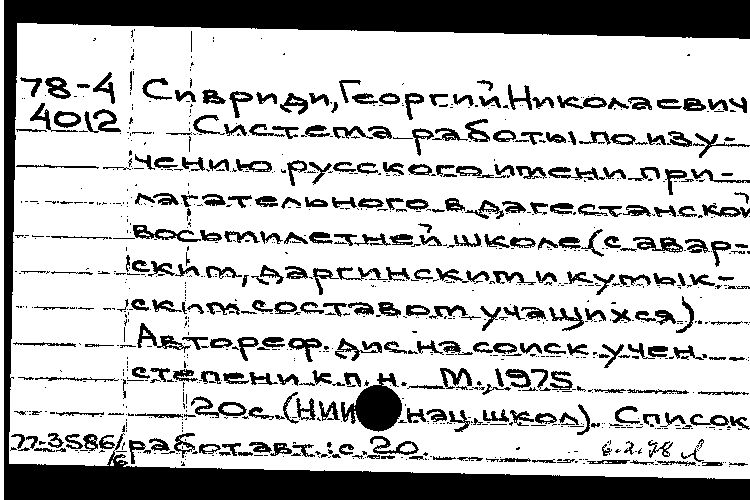 78-4 Сивриди, Георгий Николаевич
4012 Система работы по изу-
чению русского имени при-
лагательного в дагестанской
восьмилетней школе (с авар-
ским, даргинским и кумык-
ским составом учащихся)
Автореф. дис. на соиск. учен.
степени к.п.н. М., 1975.
20с. (НИИ нац. школ). Список
77-3586/б работ авт.: с. 20.